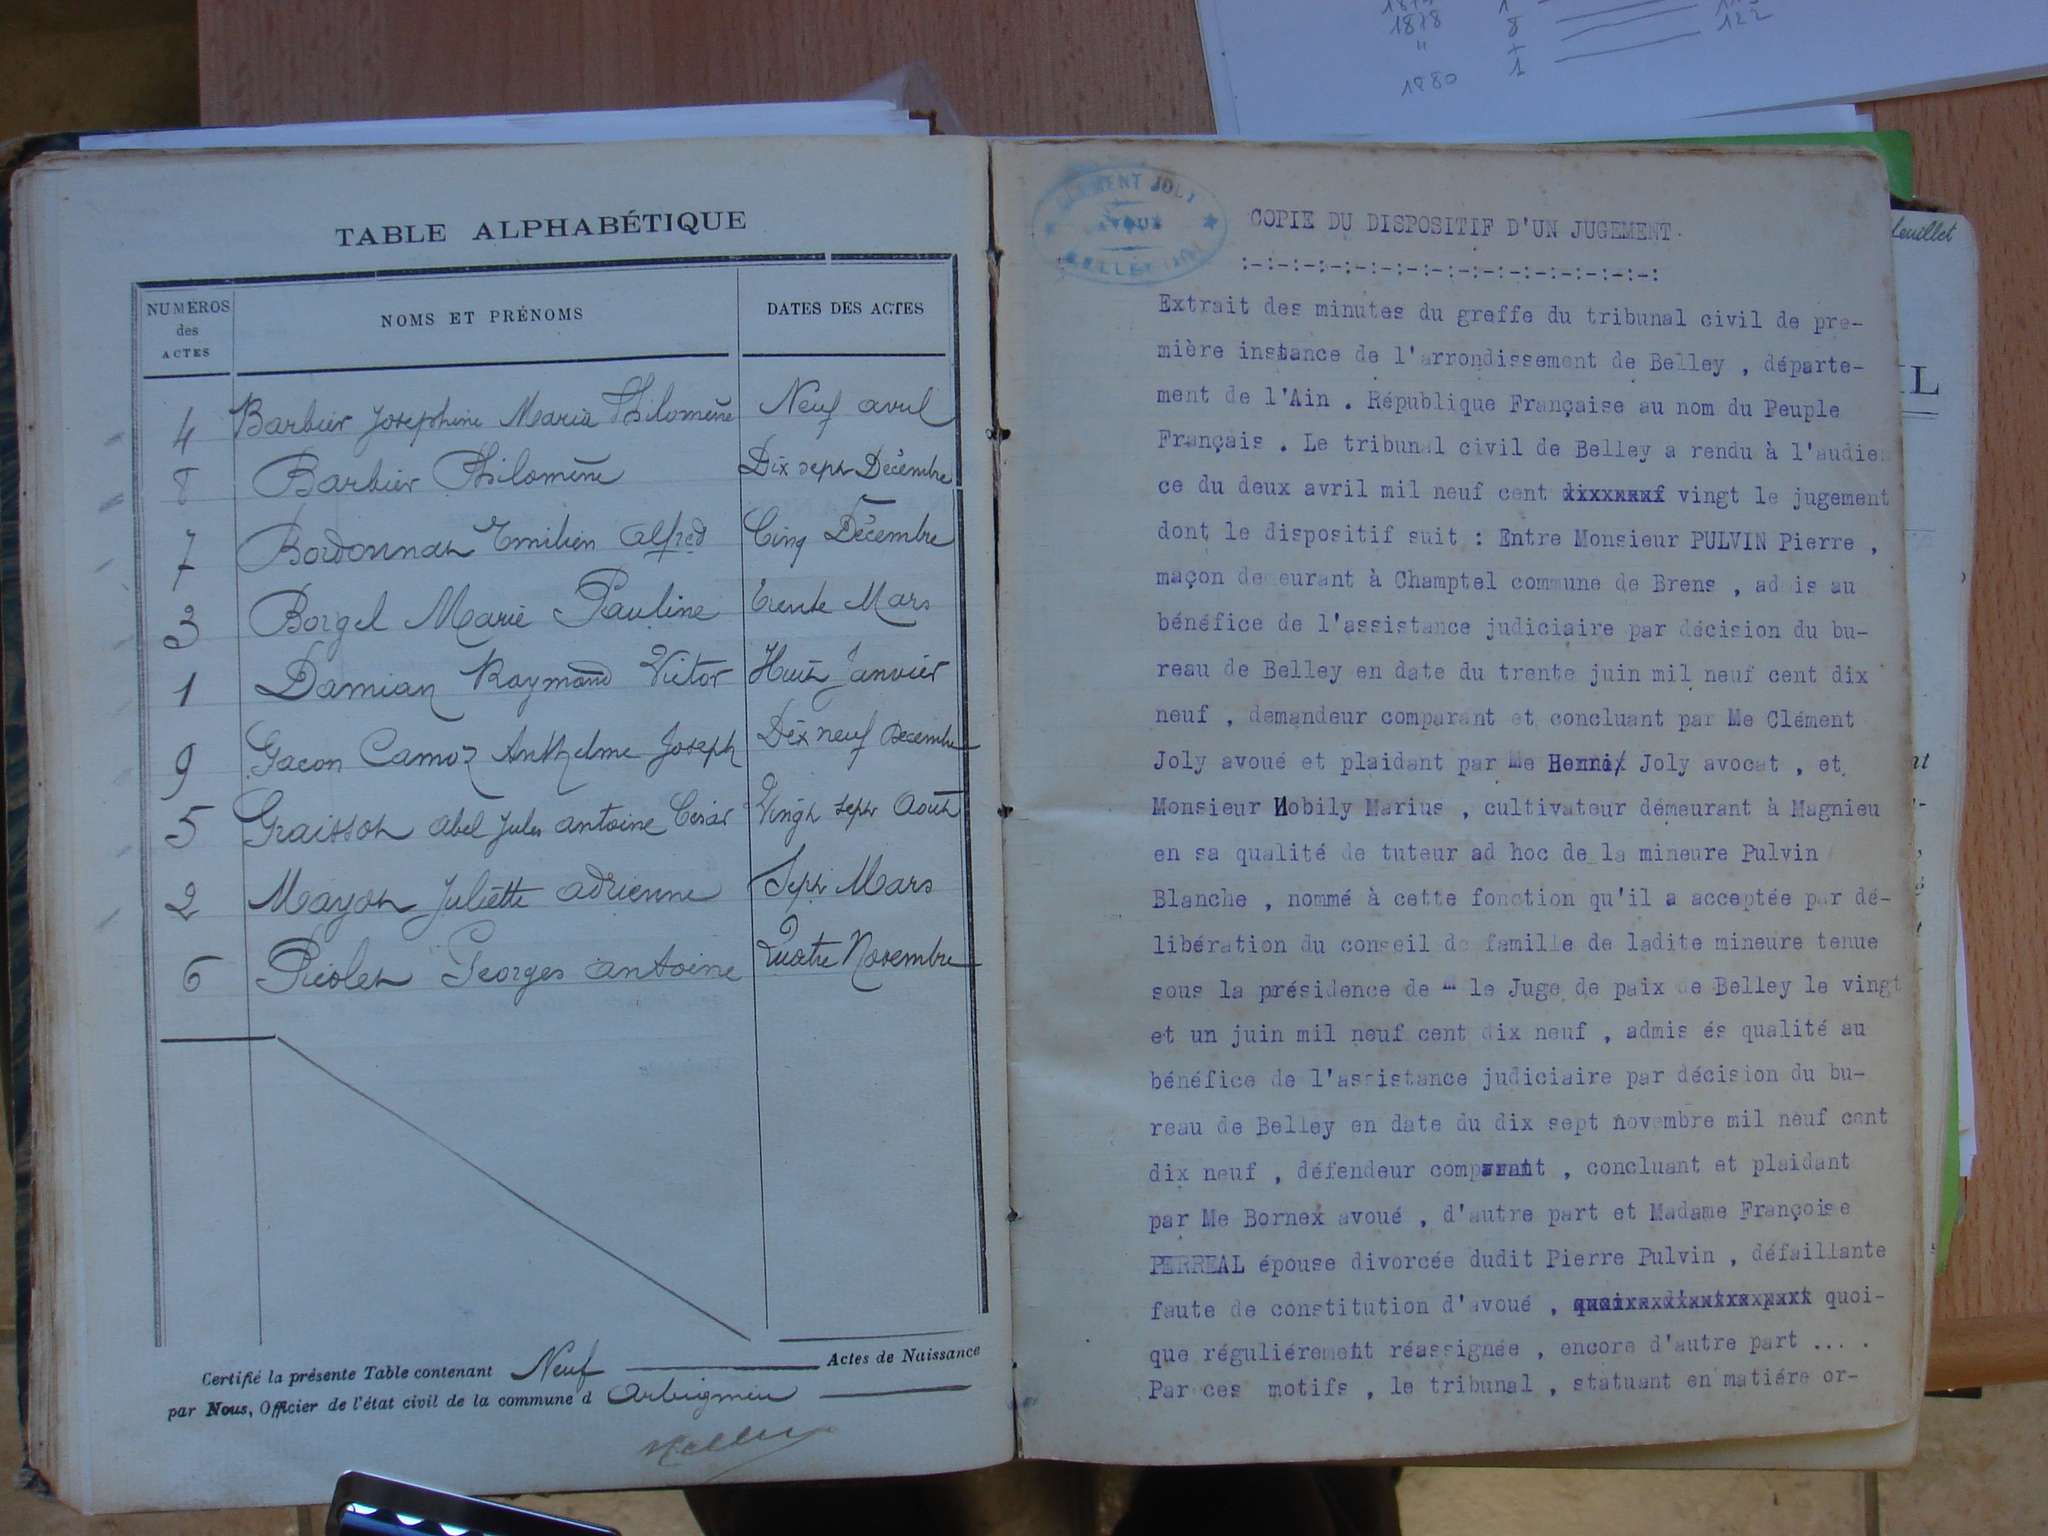 1878 8 122
" +
1880 1
TABLE ALPHABÉTIQUE
NUMÉROS des ACTES
NOMS ET PRÉNOMS
DATES DES ACTES
4 Barbier Josephine Maria Philomène Neuf avril
8 Barbier Philomène Dix sept Décembre
7 Bordonnat Emilien Alfred Cinq Décembre
3 Borgel Marie Pauline Trente Mars
1 Damian Raymond Victor Huit Janvier
9 Gacon Camoz Anthelme Joseph Dix neuf Decembre
5 Graissot Abel Jules Antoine César Vingt sept Août
2 Mayot Juliette Adrienne Sept Mars
6 Riolet Georges Antoine Quatre Novembre
Certifié la présente Table contenant Neuf Actes de Naissance
par Nous, Officier de l'état civil de la commune d Arbignieu
CLEMENT JOLY
AVOUÉ
BELLEY (AIN)
COPIE DU DISPOSITIF D'UN JUGEMENT.
:-:-:-:-:-:-:-:-:-:-:-:-:-:-:-:-:-:
Extrait des minutes du greffe du tribunal civil de pre-
mière instance de l'arrondissement de Belley , départe-
ment de l'Ain . République Française au nom du Peuple
Français . Le tribunal civil de Belley a rendu à l'audien
ce du deux avril mil neuf cent vingt le jugement
dont le dispositif suit : Entre Monsieur PULVIN Pierre ,
maçon demeurant à Champtel commune de Brens , admis au
bénéfice de l'assistance judiciaire par décision du bu-
reau de Belley en date du trente juin mil neuf cent dix
neuf , demandeur comparant et concluant par Me Clément
Joly avoué et plaidant par Me Henri Joly avocat , et
Monsieur Nobily Marius , cultivateur demeurant à Magnieu
en sa qualité de tuteur ad hoc de la mineure Pulvin
Blanche , nommé à cette fonction qu'il a acceptée par dé-
libération du conseil de famille de ladite mineure tenue
sous la présidence de M le Juge de paix de Belley le vingt
et un juin mil neuf cent dix neuf , admis és qualité au
bénéfice de l'assistance judiciaire par décision du bu-
reau de Belley en date du dix sept novembre mil neuf cent
dix neuf , défendeur comparant , concluant et plaidant
par Me Bornex avoué , d'autre part et Madame Françoise
PERREAL épouse divorcée dudit Pierre Pulvin , défaillante
faute de constitution d'avoué , quoi-
que réguliérement réassignée , encore d'autre part ... .
Par ces motifs , le tribunal , statuant en matiére or-
feuillet